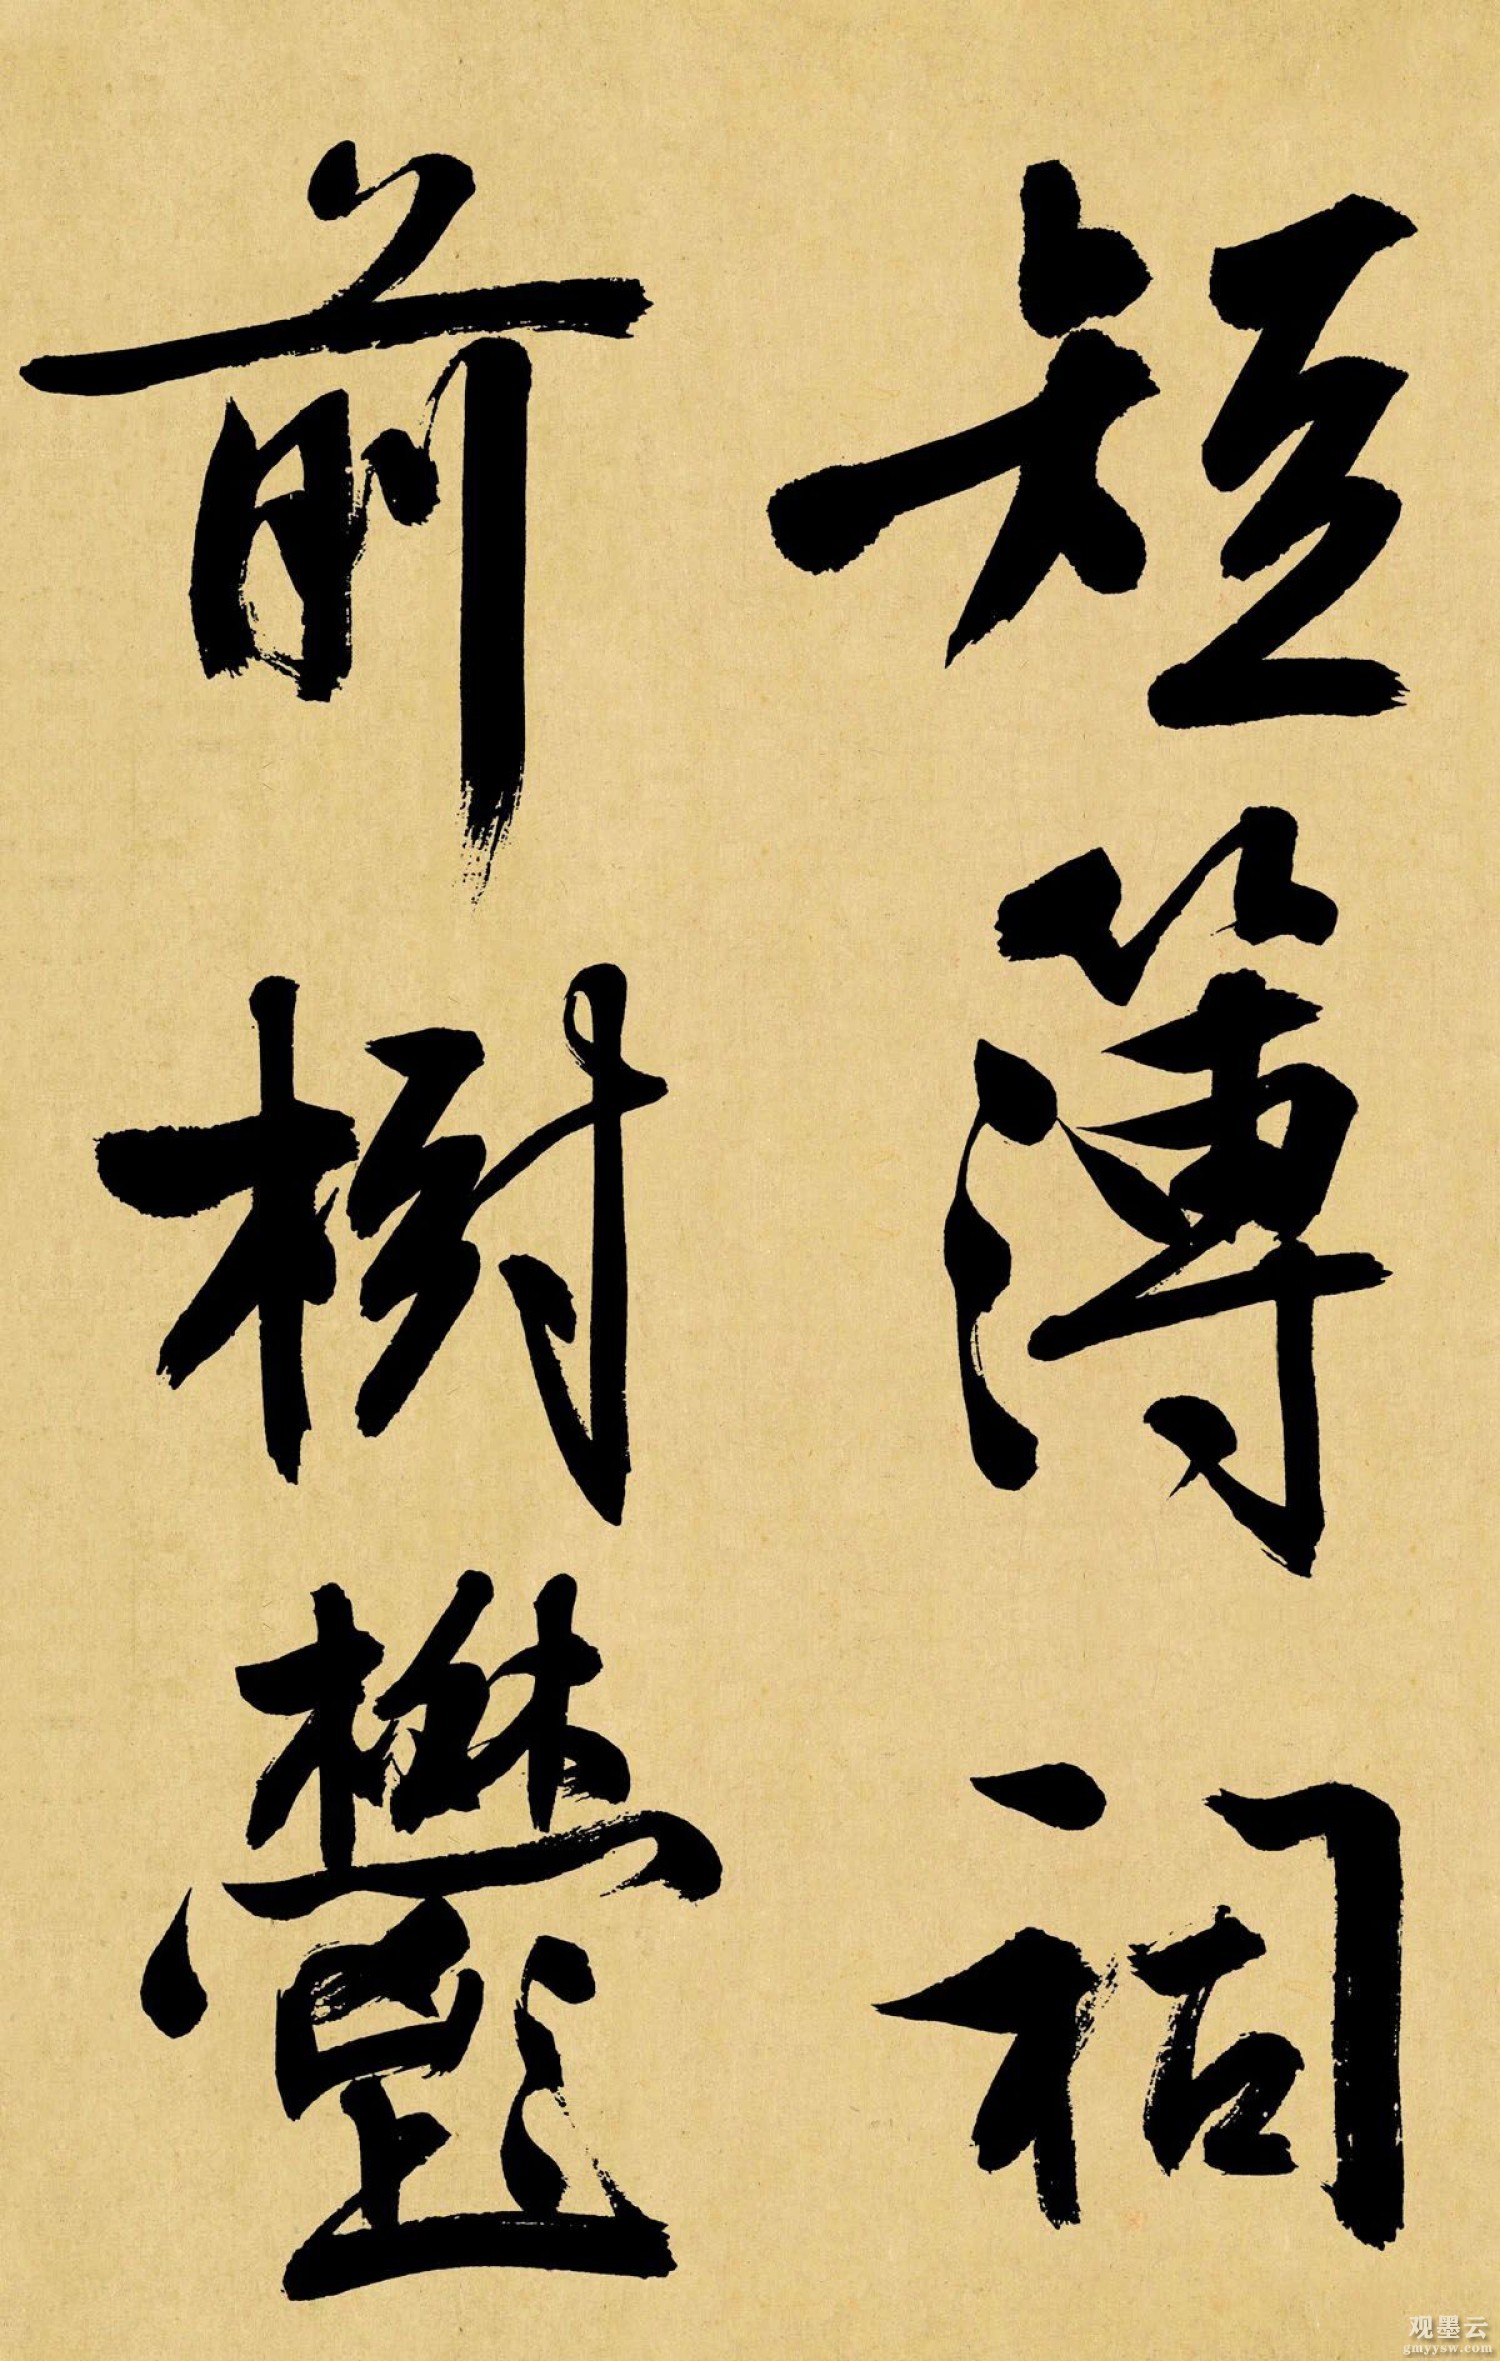 短簿祠
前樹鬱
观墨云
gmyysw.com